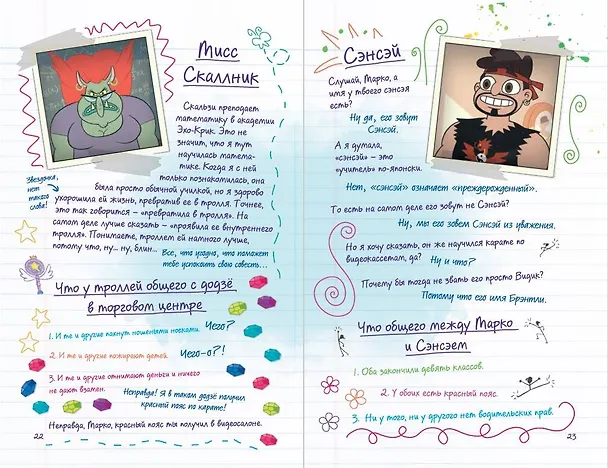 Мисс
Скаллник
Скальзи преподает
математику в академии
Эхо-Крик. Это не
значит, что я тут
научилась матема-
тике. Когда я с ней
только познакомилась, она
была просто обычной училкой, но я здорово
ухорошила ей жизнь, превратив ее в тролля. Точнее,
это так говорится – «превратила в тролля». На
самом деле лучше сказать – «проявила ее внутреннего
тролля». Понимаете, троллем ей намного лучше,
потому что, ну... ну, блин...
Звездочка,
нет
такого
слова!
Все, что угодно, что поможет
тебе успокоить свою совесть...
Что у троллей общего с додзё
в торговом центре
1. И те и другие пахнут ношеными носками.
Чего?
2. И те и другие пожирают детей.
Чего-о?!
3. И те и другие отнимают деньги и ничего
не дают взамен.
Неправда! Я в таком додзё получил
красный пояс по карате!
Неправда, Марко, красный пояс ты получил в видеосалоне.
22
Сэнсэй
Слушай, Марко, а
имя у твоего сэнсэя
есть?
Ну да, его зовут
Сэнсэй.
А я думала,
«сэнсэй» – это
«учитель» по-японски.
Нет, «сэнсэй» означает «преждерожденный».
То есть на самом деле его зовут не Сэнсэй?
Ну, мы его зовем Сэнсэй из уважения.
Но я хочу сказать, он же научился карате по
видеокассетам, да?
Ну и что?
Почему бы тогда не звать его просто Видик?
Потому что его имя Брэнтли.
Что общего между Марко
и Сэнсэем
1. Оба закончили девять классов.
2. У обоих есть красный пояс.
3. Ни у того, ни у другого нет водительских прав.
23